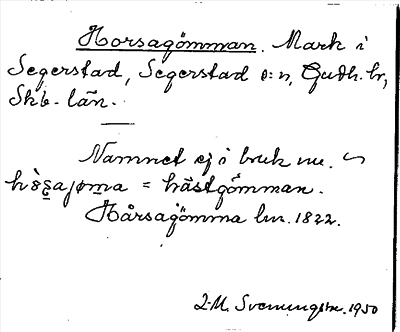 Horsagömman. Mark i
Segerstad, Segerstad s:n, Gudh. hr,
Skb. län.
Namnet ej i bruk nu. ~
= hästgömman.
Hårsagömma lm. 1822.
1950